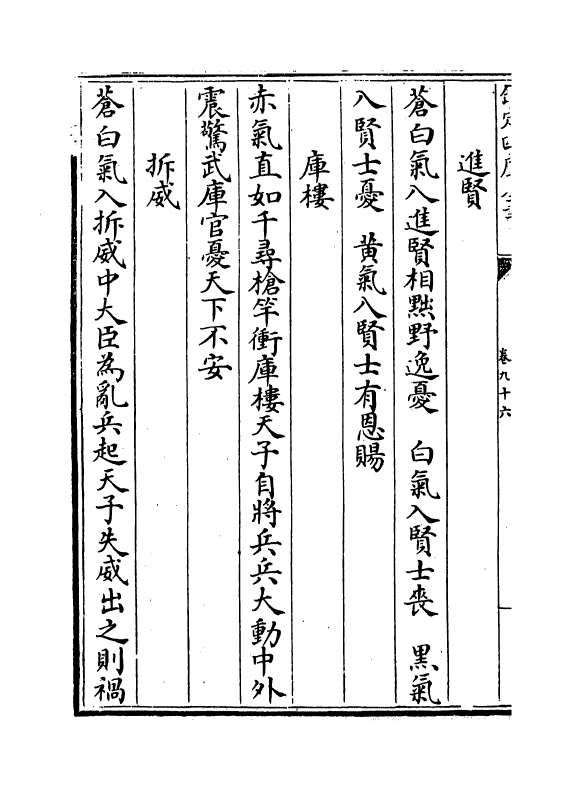 欽定四庫全書
卷九十六
進賢
蒼白氣入進賢相黜野逸憂　白氣入賢士喪　黒氣
入賢士憂　黄氣入賢士有恩賜
庫樓
赤氣直如千尋槍竿衝庫樓天子自將兵兵大動中外
震驚武庫官憂天下不安
拆威
蒼白氣入拆威中大臣為亂兵起天子失威出之則禍